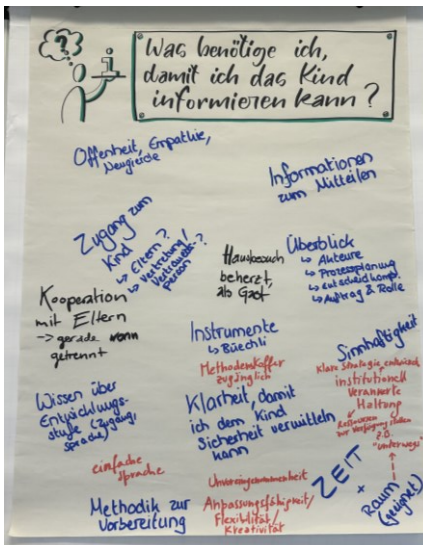 ?
i
Was benötige ich,
damit ich das Kind
informieren kann?
Offenheit, Empathie,
Neugierde
Informationen
zum Mitteilen
Zugang zum
Kind
↳ Eltern?
↳ Vertretung/
Vertrauens-?
person
Hausbesuch
beherzt,
als Gast
Überblick
↳ Akteure
↳ Prozessplanung
↳ Auftrag & Rolle
Kooperation
mit Eltern
→ gerade wenn
getrennt
Instrumente
↳ Büechli
Methodenkoffer
zugänglich
Sinnhaftigkeit
Klare Strategie
institutionell
Verankerte
Haltung
Ressourcen
zur Verfügung stellen
z.B.
"unterwegs"
Wissen über
Entwicklungs-
stufe (Zugang,
Sprache)
Klarheit, damit
ich dem Kind
Sicherheit vermitteln
kann
einfache
Sprache
Unvoreingenommenheit
Methodik zur
Vorbereitung
Anpassungsfähigkeit/
Flexibilität/
Kreativität
ZEIT
+
Raum
(geeignet)